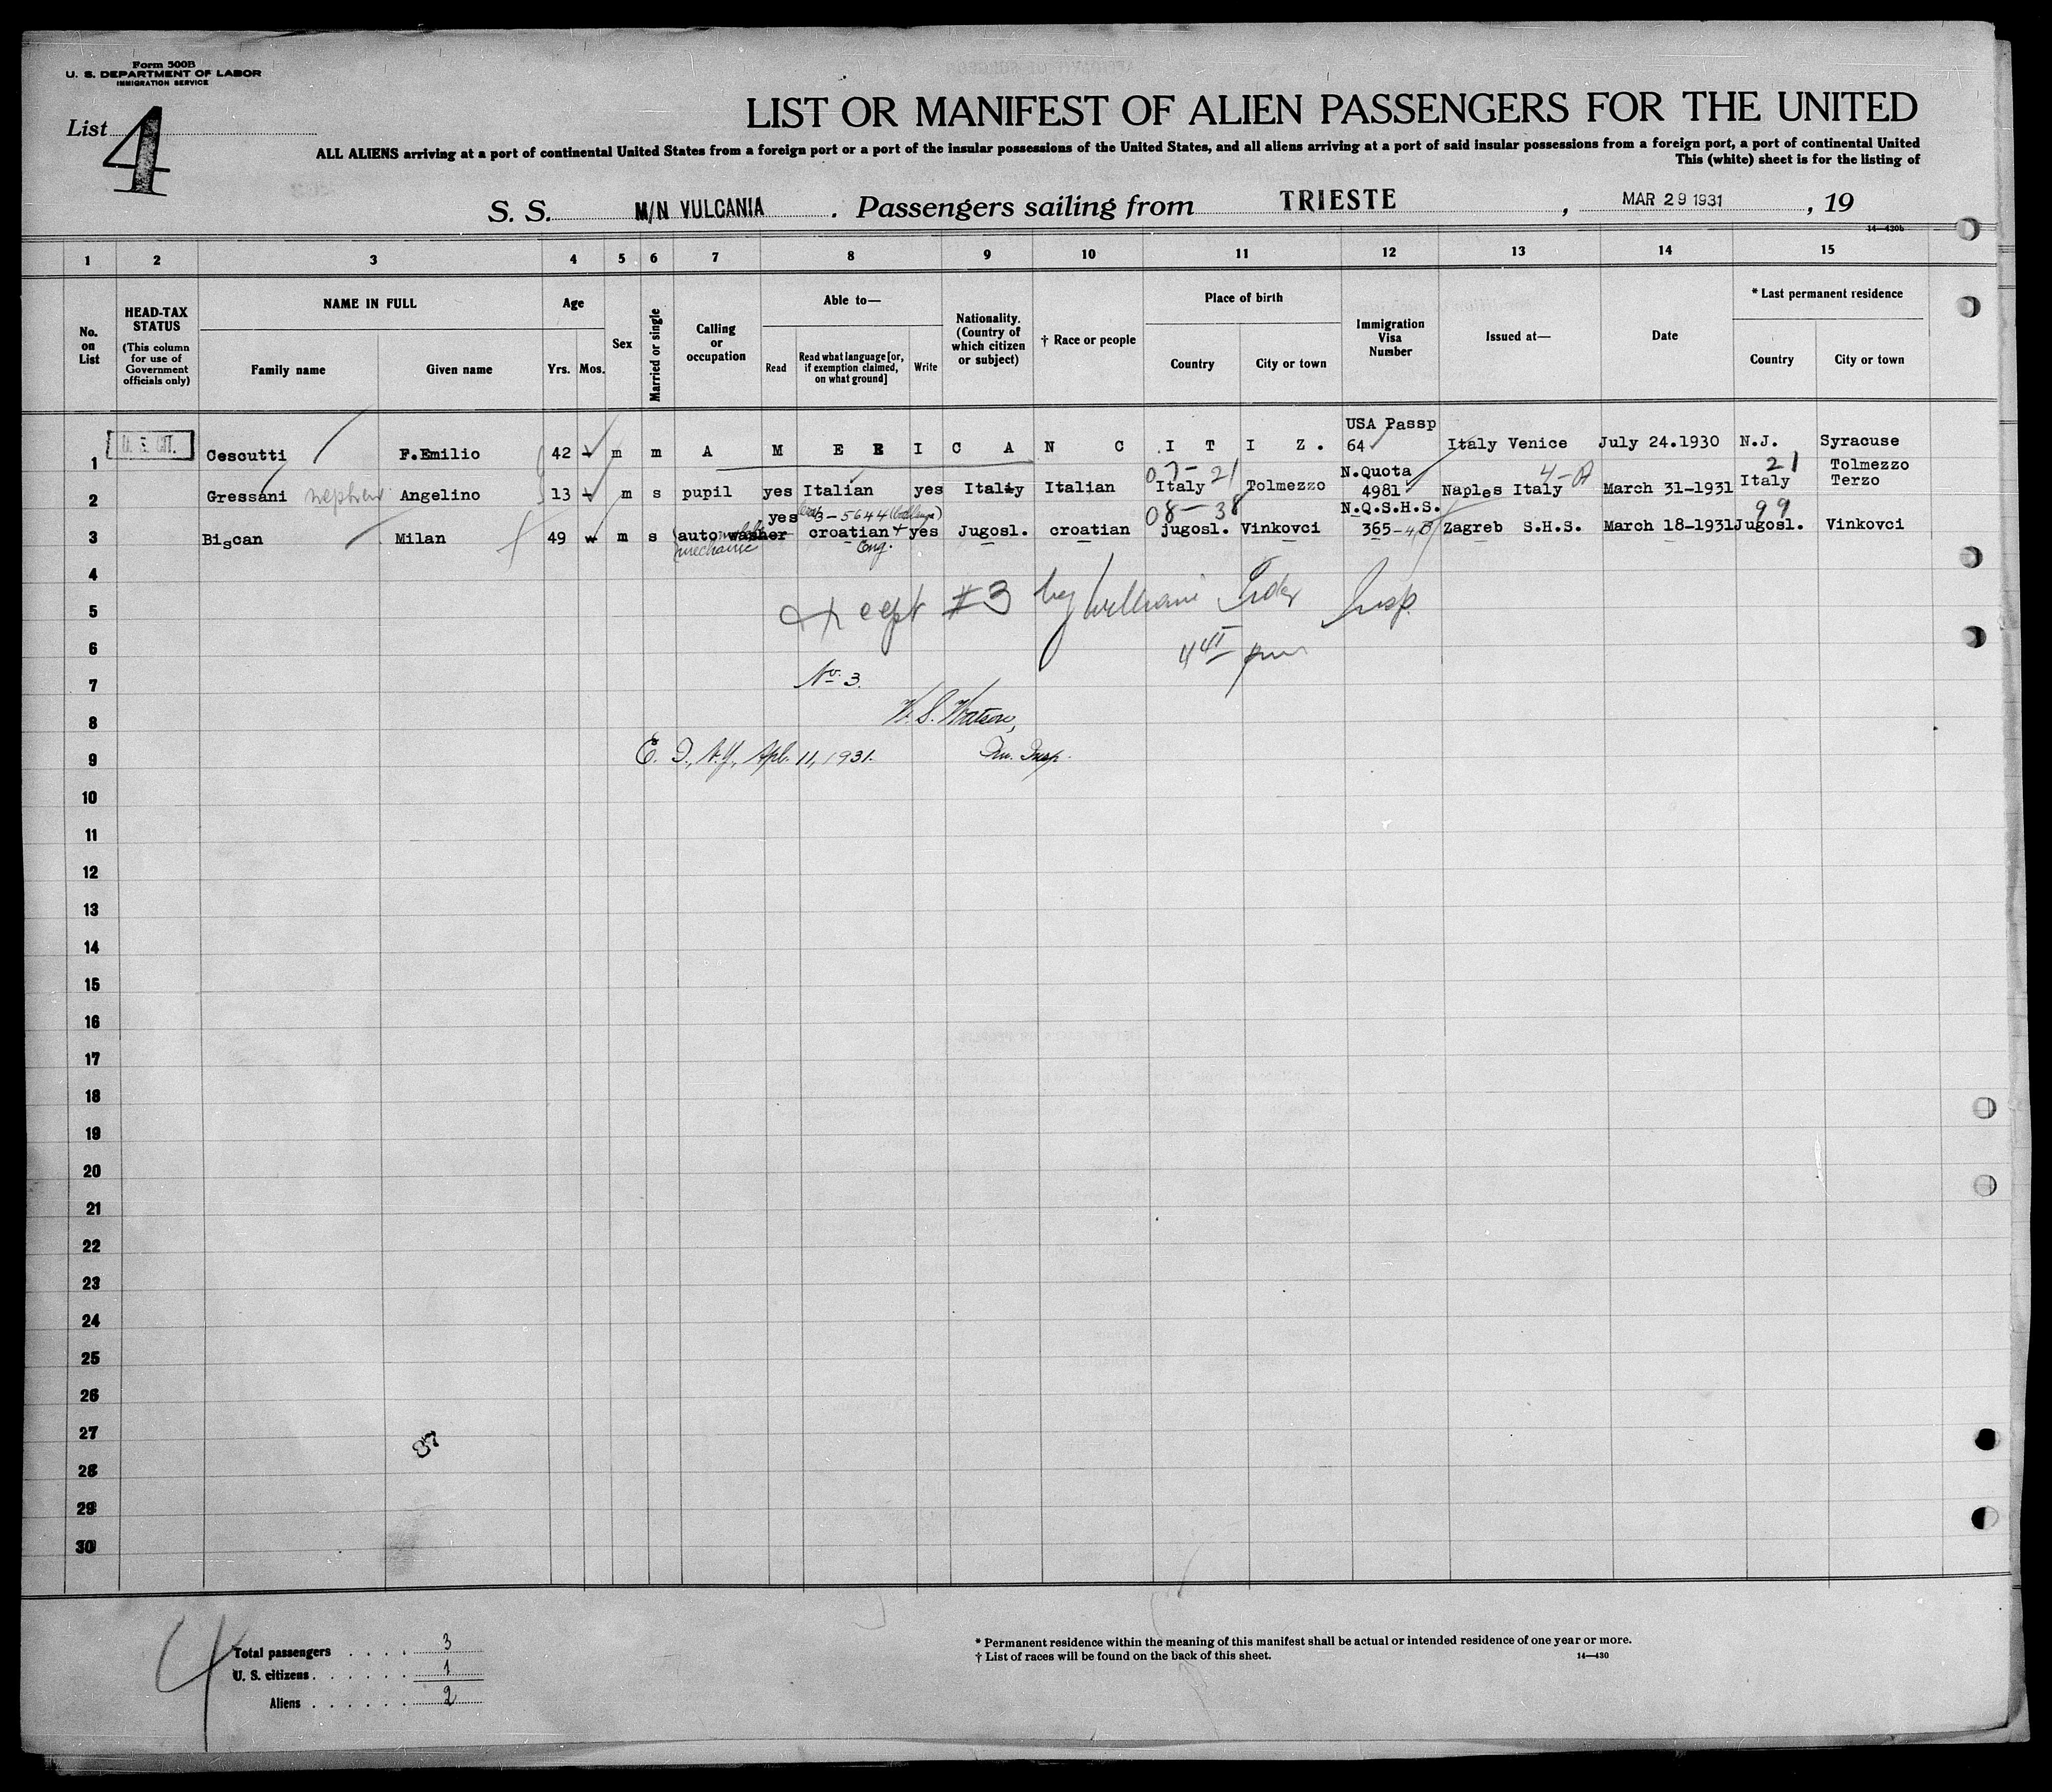 Form 500B
U. S. DEPARTMENT OF LABOR
IMMIGRATION SERVICE
List 4
LIST OR MANIFEST OF ALIEN PASSENGERS FOR THE UNITED
ALL ALIENS arriving at a port of continental United States from a foreign port or a port of the insular possessions of the United States, and all aliens arriving at a port of said insular possessions from a foreign port, a port of continental United
This (white) sheet is for the listing of
S. S. M/N VULCANIA . Passengers sailing from TRIESTE , MAR 29 1931 , 19
14—430b
1 2 3 4 5 6 7 8 9 10 11 12 13 14 15
No. on List
HEAD-TAX STATUS (This column for use of Government officials only)
NAME IN FULL
Family name Given name
Age
Yrs. Mos.
Sex
Married or single
Calling or occupation
Able to—
Read Read what language [or, if exemption claimed, on what ground] Write
Nationality. (Country of which citizen or subject)
† Race or people
Place of birth
Country City or town
Immigration Visa Number
Issued at—
Date
* Last permanent residence
Country City or town
USA Passp
1 U. S. CIT. Cescutti F.Emilio 42 m m A M E R I C A N C I T I Z. 64 Italy Venice July 24.1930 N.J. Syracuse
07-21 N.Quota 4-A 21 Tolmezzo
2 Gressani nephew Angelino 13 m s pupil yes Italian yes Italiy Italian Italy Tolmezzo 4981 Naples Italy March 31-1931 Italy Terzo
yes 3-5644 08-38 N.Q.S.H.S. 99
3 Biscan Milan 49 m s auto washer croatian + yes Jugosl. croatian jugosl. Vinkovci 365-4 Zagreb S.H.S. March 18-1931 Jugosl. Vinkovci
mechanic Eng.
4
5 Except #3 by William Insp.
6 4 45 pm
7 No. 3.
8 W. S. Watson,
9 E. I., N.Y., Apl. 11, 1931. Im. Insp.
10
11
12
13
14
15
16
17
18
19
20
21
22
23
24
25
26
27
87
28
29
30
4
Total passengers . . . . 3
U. S. citizens . . . . . . 1
Aliens . . . . . . 2
* Permanent residence within the meaning of this manifest shall be actual or intended residence of one year or more.
† List of races will be found on the back of this sheet. 14—430